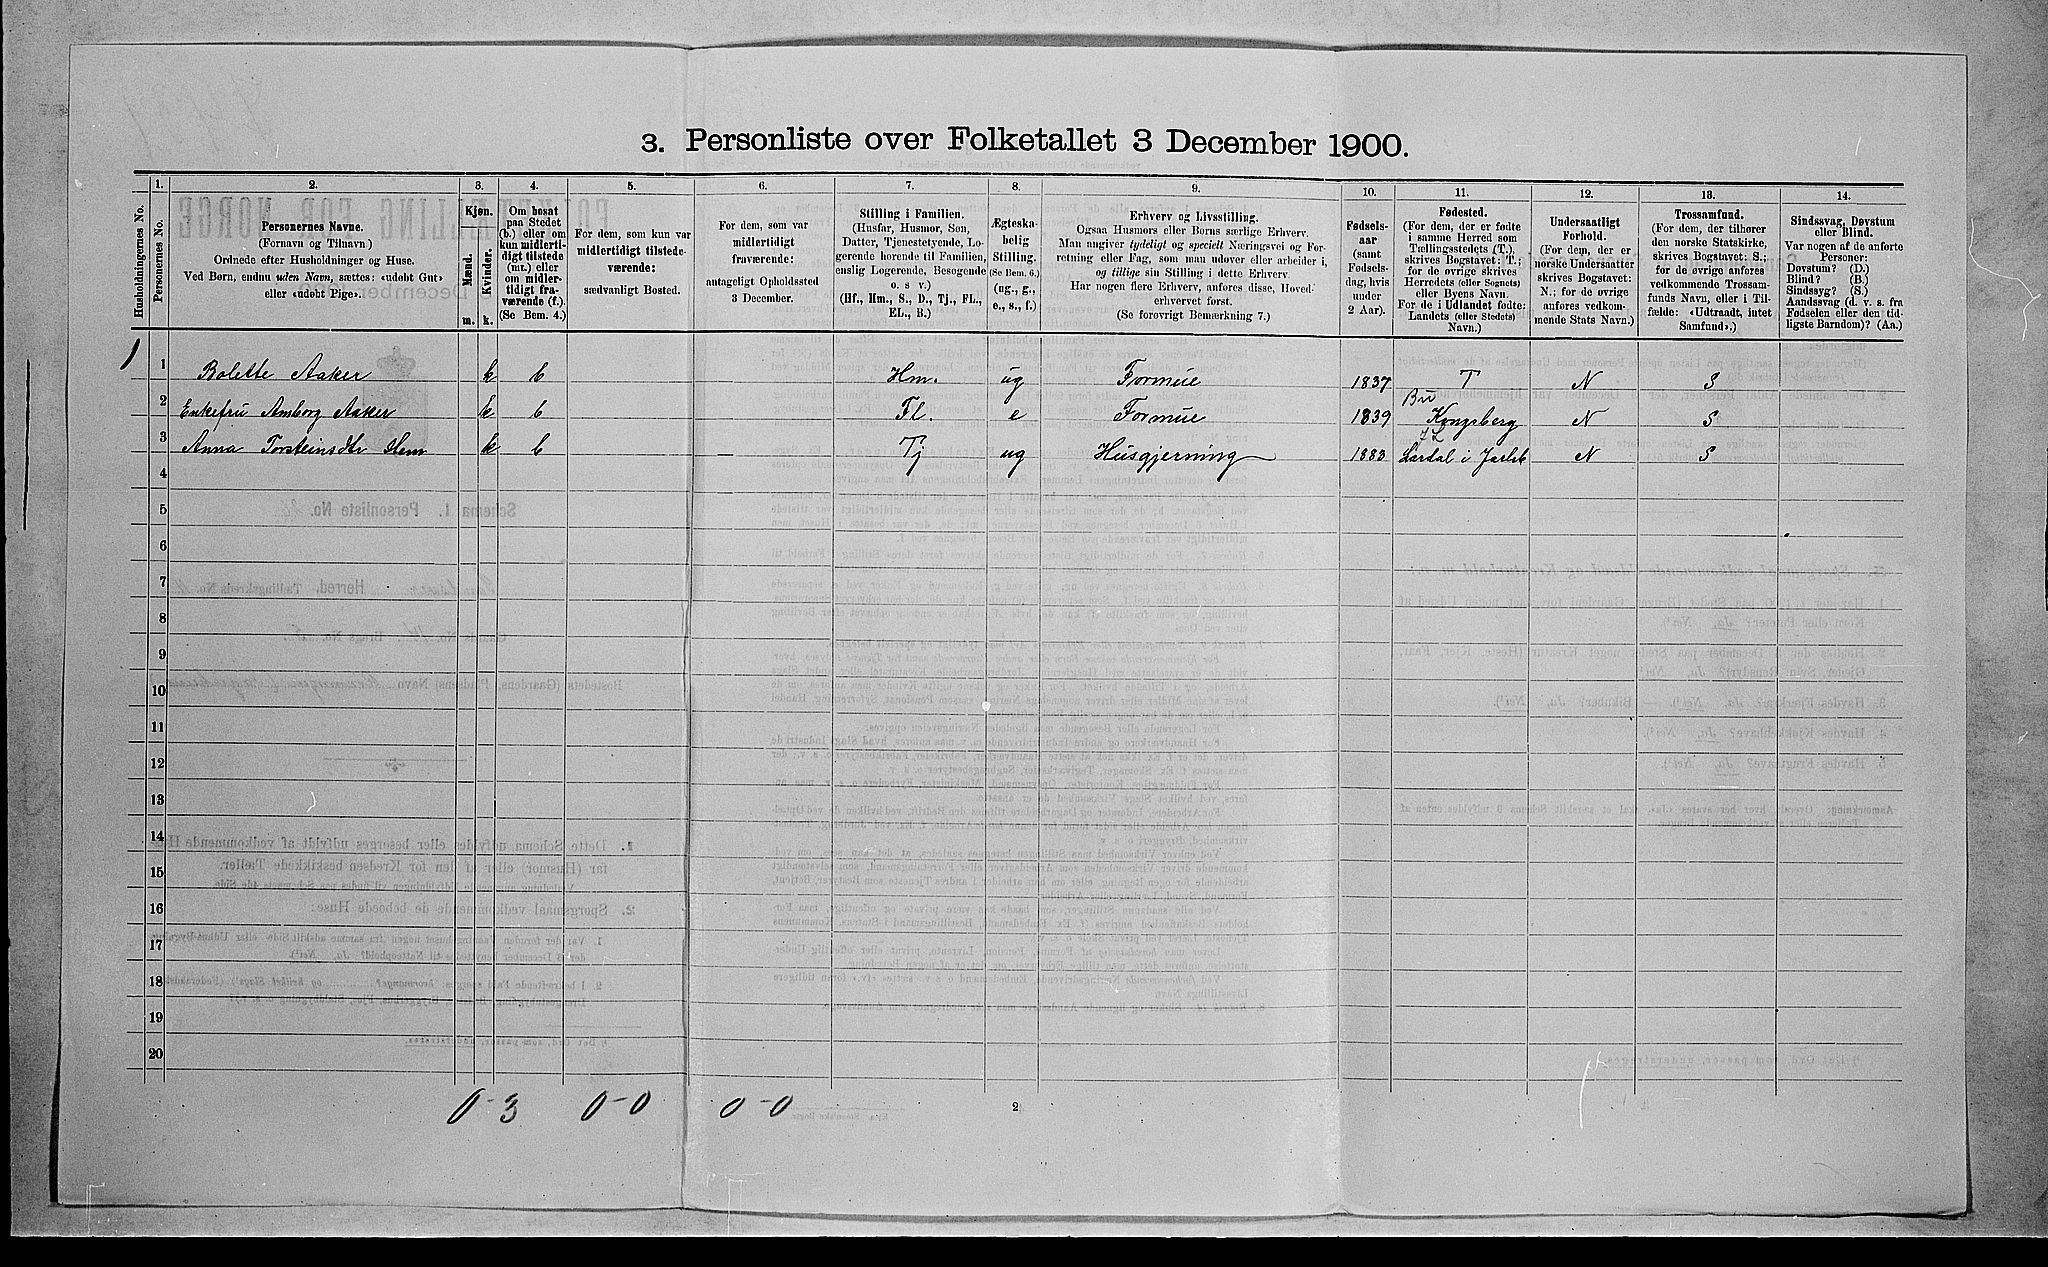 3. Personliste over Folketallet 3 December 1900.
1. 2. 3. 4. 5. 6. 7. 8. 9. 10. 11. 12. 13. 14.
Husholdningernes No.
Personernes No.
Personernes Navne.
(Fornavn og Tilnavn)
Ordnede efter Husholdninger og Huse.
Ved Børn, endnu uden Navn, sættes: «udøbt Gut»
eller «udøbt Pige».
Kjøn.
Mænd.
Kvinder.
m. k.
Om bosat
paa Stedet
(b.) eller om
kun midlerti-
digt tilstede
(mt.) eller
om midler-
tidigt fra-
værende (f.)
(Se Bem. 4.)
For dem, som kun var
midlertidigt tilstede-
værende:
sædvanligt Bosted.
For dem, som var
midlertidigt
fraværende:
antageligt Opholdssted
3 December.
Stilling i Familien.
(Husfar, Husmor, Søn,
Datter, Tjenestetyende, Lo-
gerende hørende til Familien,
enslig Logerende, Besøgende
o. s v.)
(Hf., Hm., S., D., Tj., FL.,
EL., B.)
Ægteska-
belig
Stilling.
(Se Bem. 6.)
(ug., g.,
e., s., f.)
Erhverv og Livsstilling.
Ogsaa Husmors eller Børns særlige Erhverv.
Man angiver tydeligt og specielt Næringsvei og For-
retning eller Fag, som man udøver eller arbeider i,
og tillige sin Stilling i dette Erhverv.
Har nogen flere Erhverv, anføres disse, Hoved-
erhvervet først.
(Se forøvrigt Bemærkning 7.)
Fødsels-
aar
(samt
Fødsels-
dag, hvis
under
2 Aar).
Fødested.
(For dem, der er fødte
i samme Herred som
Tællingsstedets (T.),
skrives Bogstavet: T.;
for de øvrige skrives
Herredets (eller Sognets)
eller Byens Navn.
For de i Udlandet fødte:
Landets (eller Stedets)
Navn.)
Undersaatligt
Forhold.
(For dem, der er
norske Undersaatter
skrives Bogstavet:
N.; for de øvrige
anføres vedkom-
mende Stats Navn.)
Trossamfund.
(For dem, der tilhører
den norske Statskirke,
skrives Bogstavet: S.;
for de øvrige anføres
vedkommende Trossam-
funds Navn, eller i Til-
fælde: «Udtraadt, intet
Samfund».)
Sindssvag, Døvstum
eller Blind.
Var nogen af de anførte
Personer:
Døvstum? (D.)
Blind? (B.)
Sindssyg? (S.)
Aandssvag (d. v. s. fra
Fødselen eller den tid-
ligste Barndom)? (Aa.)
1 1 Bolette Aaker k b Hm. ug Formue 1837 T N S
Bu
2 Enkefru Amborg Aaker k b Fl. e Formue 1839 Kongsberg N S
JL
3 Anna Torsteinsdtr Hem k b Tj ug Husgjerning 1883 Lardal i Jarlsb N S
4
5
6
7
8
9
10
11
12
13
14
15
16
17
18
19
20
0-3 0-0 0-0
2